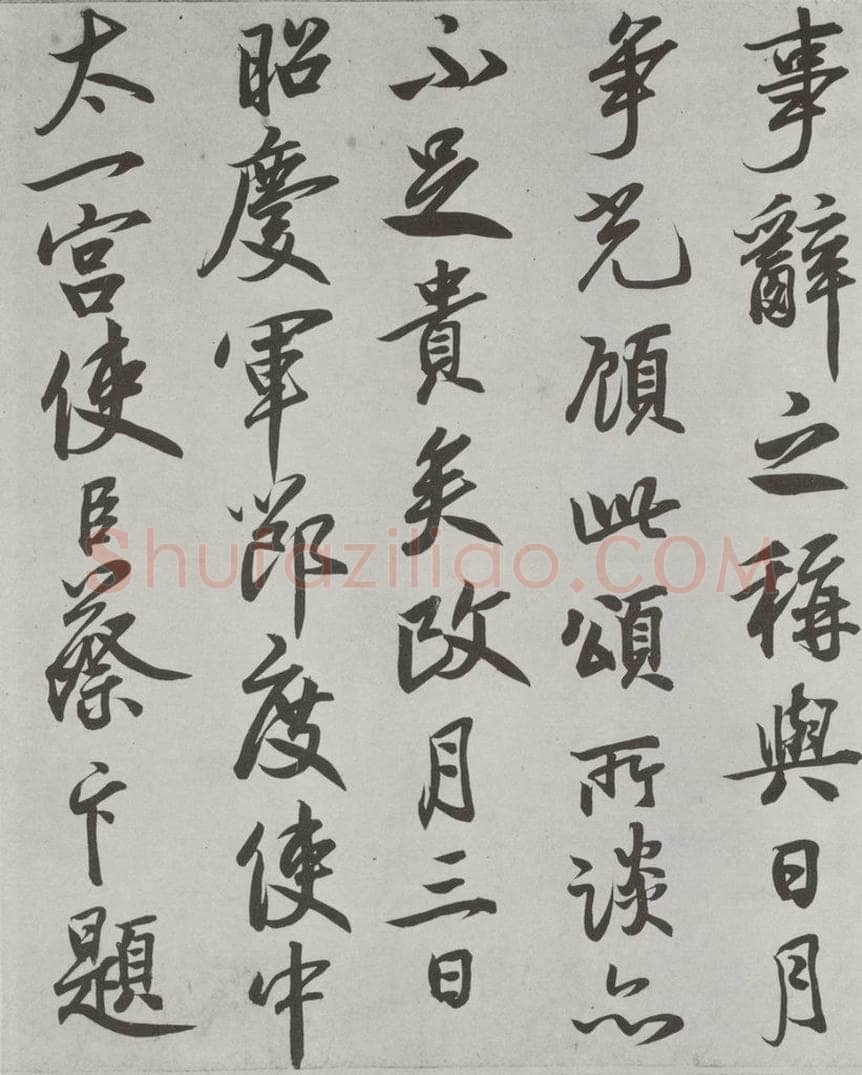 事辭之稱與日月
爭光顧此頌所談亦
不足貴矣改月三日
昭慶軍節度使中
太一宮使臣蔡卞題
Shufaziliao.COM